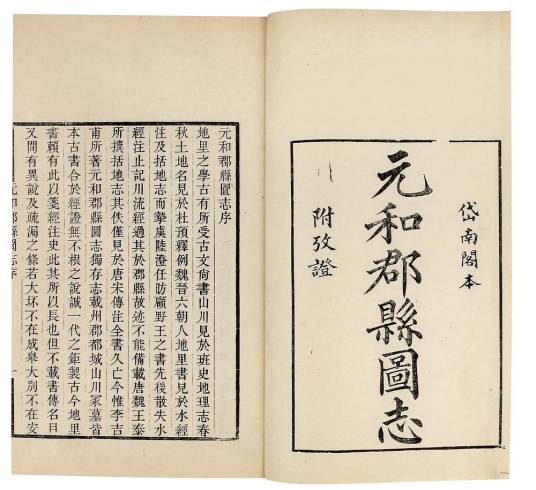 岱南閣本
元和郡縣圖志
附攷證
元和郡縣圖志序
地里之學古有所受古文尙書山川見於班史地理志春
秋土地名見於杜預釋例魏晉六朝人地里書見於水經
注及括地志而摯虞陸澄任昉顧野王之書先後散失水
經注止記川流經過其於郡縣故迹不能備載唐魏王泰
所撰括地志其佚僅見於唐宋傳注全書久亡今惟李吉
甫所著元和郡縣圖志獨存志載州郡都城山川冢墓皆
本古書合於經證無不根之說誠一代之鉅製古今地里
書賴有此以箋經注史此其所以長也但不載書傳名目
又間有異說及疏漏之條若大坯不在成皋大別不在安
元和郡縣圖志序
一